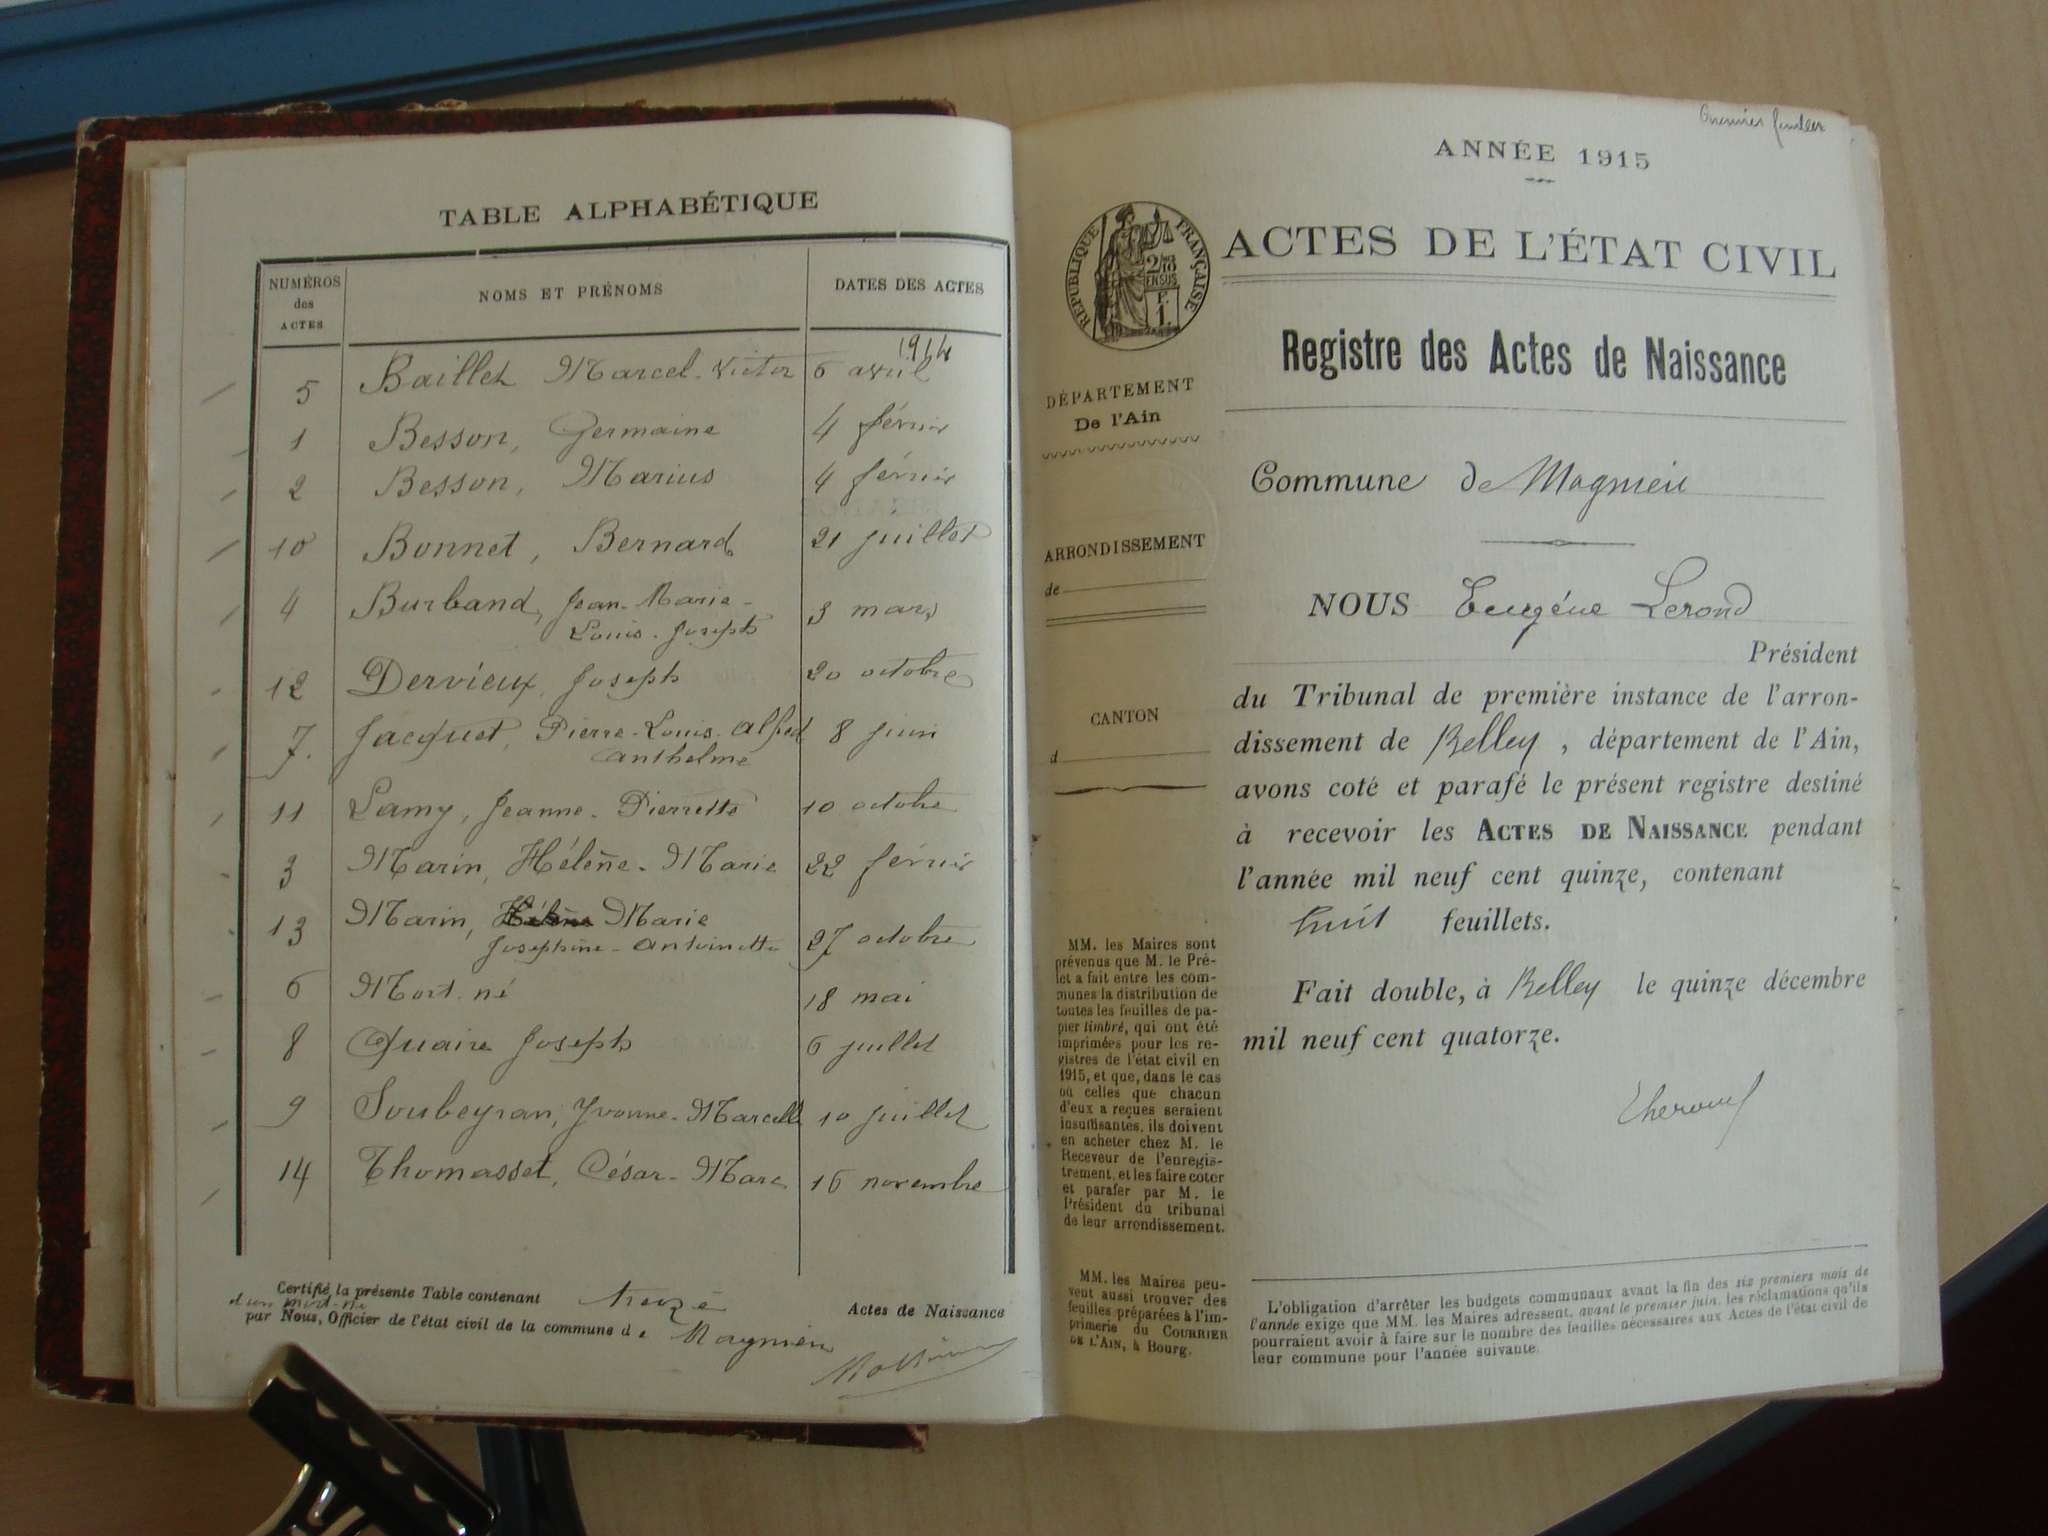 TABLE ALPHABÉTIQUE
NUMÉROS des ACTES NOMS ET PRÉNOMS DATES DES ACTES
1914
5 Baillet Marcel-Victor 6 avril
1 Besson, Germaine 4 février
2 Besson, Marius 4 février
10 Bonnet, Bernard 21 juillet
4 Burband, Jean-Marie- 3 mars
Louis-Joseph
12 Dervieux, Joseph 20 octobre
7. Jacquet, Pierre-Louis-Alfred 8 juin
Anthelme
11 Lamy, Jeanne-Pierrette 10 octobre
3 Marin, Hélène-Marie 22 février
13 Marin, Marie
Josephine-Antoinette 27 octobre
6 Mort-né 18 mai
8 Quaire Joseph 6 juillet
9 Soubeyran, Yvonne-Marcelle 10 juillet
14 Thomasset, César-Marc 16 novembre
Certifié la présente Table contenant treize Actes de Naissance
d'un mort-né
par Nous, Officier de l'état civil de la commune de Magnieu
Premier feuillet
ANNÉE 1915
RÉPUBLIQUE FRANÇAISE
ACTES DE L'ÉTAT CIVIL
Registre des Actes de Naissance
DÉPARTEMENT
De l'Ain
Commune de Magnieu
ARRONDISSEMENT
de
NOUS Eugène Lerond
Président
du Tribunal de première instance de l'arron-
dissement de Belley, département de l'Ain,
avons coté et parafé le présent registre destiné
à recevoir les ACTES DE NAISSANCE pendant
l'année mil neuf cent quinze, contenant
huit feuillets.
Fait double, à Belley le quinze décembre
mil neuf cent quatorze.
CANTON
d
MM. les Maires sont
prévenus que M. le Pré-
fet a fait entre les com-
munes la distribution de
toutes les feuilles de pa-
pier timbré, qui ont été
imprimées pour les re-
gistres de l'état civil en
1915, et que, dans le cas
où celles que chacun
d'eux a reçues seraient
insuffisantes, ils doivent
en acheter chez M. le
Receveur de l'enregis-
trement, et les faire coter
et parafer par M. le
Président du tribunal
de leur arrondissement.
MM. les Maires peu-
vent aussi trouver des
feuilles préparées à l'im-
primerie du COURRIER
DE L'AIN, à Bourg.
L'obligation d'arrêter les budgets communaux avant la fin des six premiers mois de
l'année exige que MM. les Maires adressent, avant le premier juin, les réclamations qu'ils
pourraient avoir à faire sur le nombre des feuilles nécessaires aux Actes de l'état civil de
leur commune pour l'année suivante.